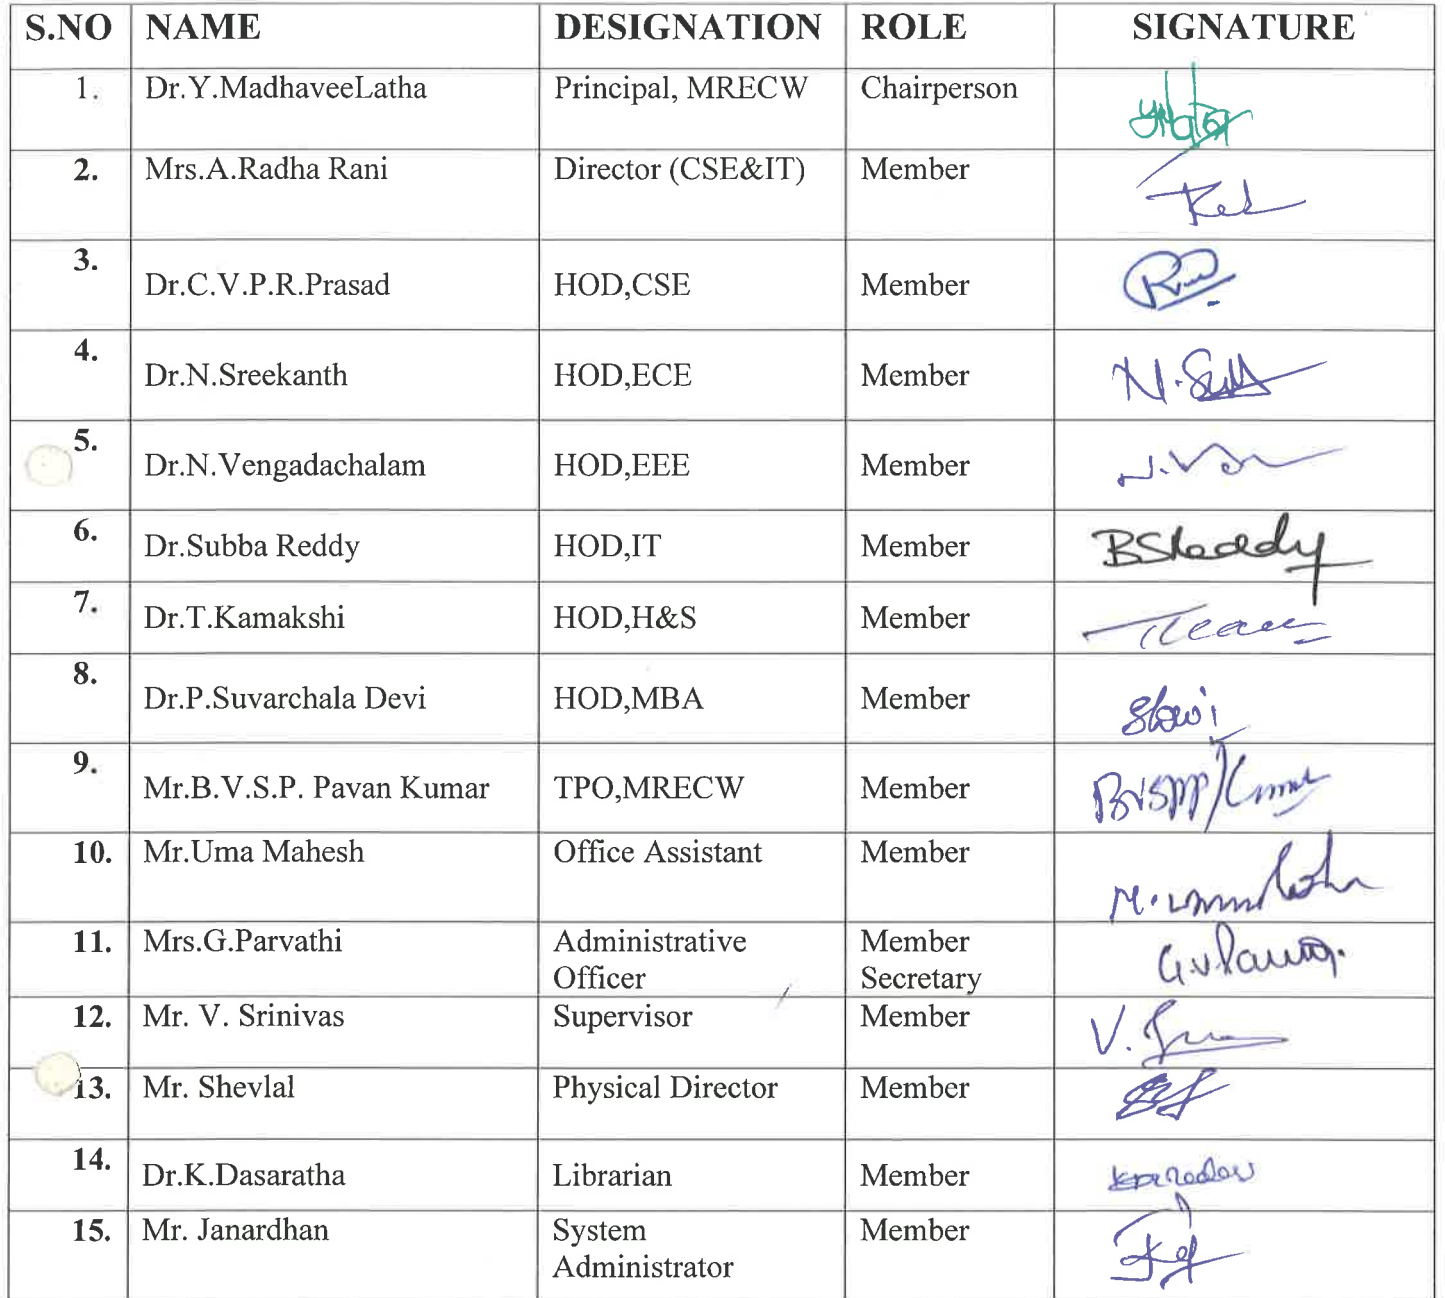 S.NO NAME DESIGNATION ROLE SIGNATURE
1. Dr.Y.MadhaveeLatha Principal, MRECW Chairperson
2. Mrs.A.Radha Rani Director (CSE&IT) Member
3. Dr.C.V.P.R.Prasad HOD,CSE Member
4. Dr.N.Sreekanth HOD,ECE Member
5. Dr.N.Vengadachalam HOD,EEE Member
6. Dr.Subba Reddy HOD,IT Member BSReddy
7. Dr.T.Kamakshi HOD,H&S Member
8. Dr.P.Suvarchala Devi HOD,MBA Member
9. Mr.B.V.S.P. Pavan Kumar TPO,MRECW Member
10. Mr.Uma Mahesh Office Assistant Member
11. Mrs.G.Parvathi Administrative Member
Officer Secretary
12. Mr. V. Srinivas Supervisor Member
13. Mr. Shevlal Physical Director Member
14. Dr.K.Dasaratha Librarian Member
15. Mr. Janardhan System Member
Administrator